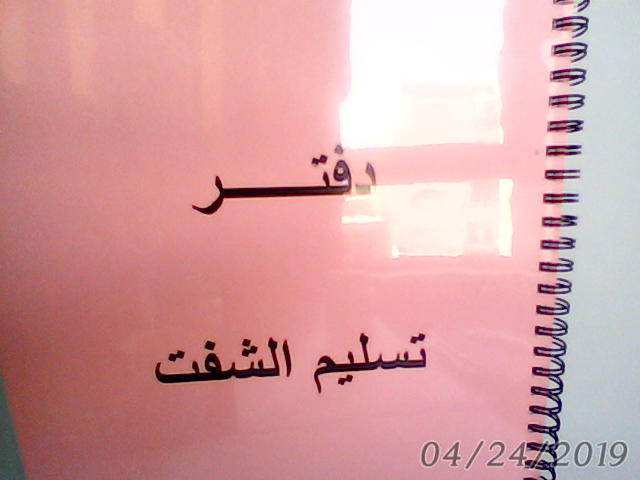 دفتر
تسليم الشفت
04/24/2019